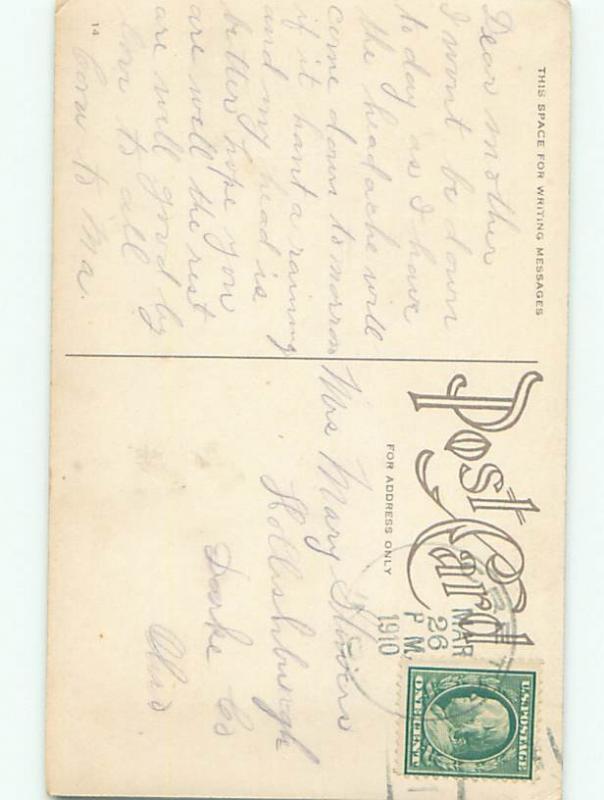 THIS SPACE FOR WRITING MESSAGES
Dear mother
I wont be down
to day as I have
the headache will
come down tomorrow
if it hant a raining
and my head is
better hope you
are well the rest
are well good by
love to all
Cora to Ma.
14
Post Card
FOR ADDRESS ONLY
MAR
26
P M.
1910
U.S. POSTAGE
ONE CENT
Mrs Mary
Hollishburgh
Darke Co
Ohio